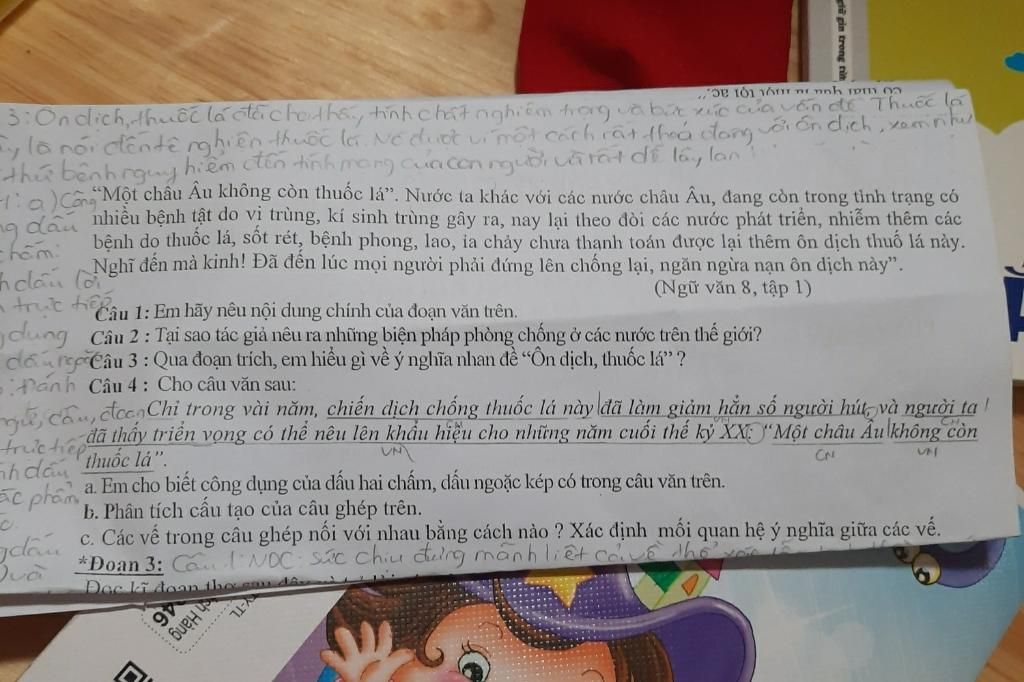 giữ gìn trong
3: Ôn dịch, thuốc lá đã cho thấy, tính chất nghiêm trọng và bức xúc của vấn đề Thuốc lá
là nói đến tệ nghiện thuốc lá. Nó được ví một cách rất thoả đáng với ôn dịch, xem như
thứ bệnh nguy hiểm đến tính mạng của con người và rất dễ lây, lan
1: a) Công
“Một châu Âu không còn thuốc lá”. Nước ta khác với các nước châu Âu, đang còn trong tình trạng có
dấu
nhiều bệnh tật do vị trùng, kí sinh trùng gây ra, nay lại theo đòi các nước phát triển, nhiễm thêm các
chấm:
bệnh do thuốc lá, sốt rét, bệnh phong, lao, ỉa chảy chưa thanh toán được lại thêm ôn dịch thuố lá này.
dẫn lời
Nghĩ đến mà kinh! Đã đến lúc mọi người phải đứng lên chống lại, ngăn ngừa nạn ôn dịch này”.
(Ngữ văn 8, tập 1)
trực tiếp
Câu 1: Em hãy nêu nội dung chính của đoạn văn trên.
dụng
Câu 2 : Tại sao tác giả nêu ra những biện pháp phòng chống ở các nước trên thế giới?
dấu ngoặc
Câu 3 : Qua đoạn trích, em hiểu gì về ý nghĩa nhan đề “Ôn dịch, thuốc lá” ?
Đánh
Câu 4 : Cho câu văn sau:
câu, đoạn
Chỉ trong vài năm, chiến dịch chống thuốc lá này đã làm giảm hẳn số người hút, và người ta
trực tiếp
đã thấy triển vọng có thể nêu lên khẩu hiệu cho những năm cuối thế kỷ XX: “Một châu Âu không còn
CN
VN
dấu
thuốc lá”.
CN
VN
phẩm
a. Em cho biết công dụng của dấu hai chấm, dấu ngoặc kép có trong câu văn trên.
b. Phân tích cấu tạo của câu ghép trên.
c. Các vế trong câu ghép nối với nhau bằng cách nào ? Xác định mối quan hệ ý nghĩa giữa các vế.
*Đoạn 3: Câu 1: NDC: sức chịu đựng mãnh liệt cả về thể
Đọc kĩ đoạn thơ sau
46